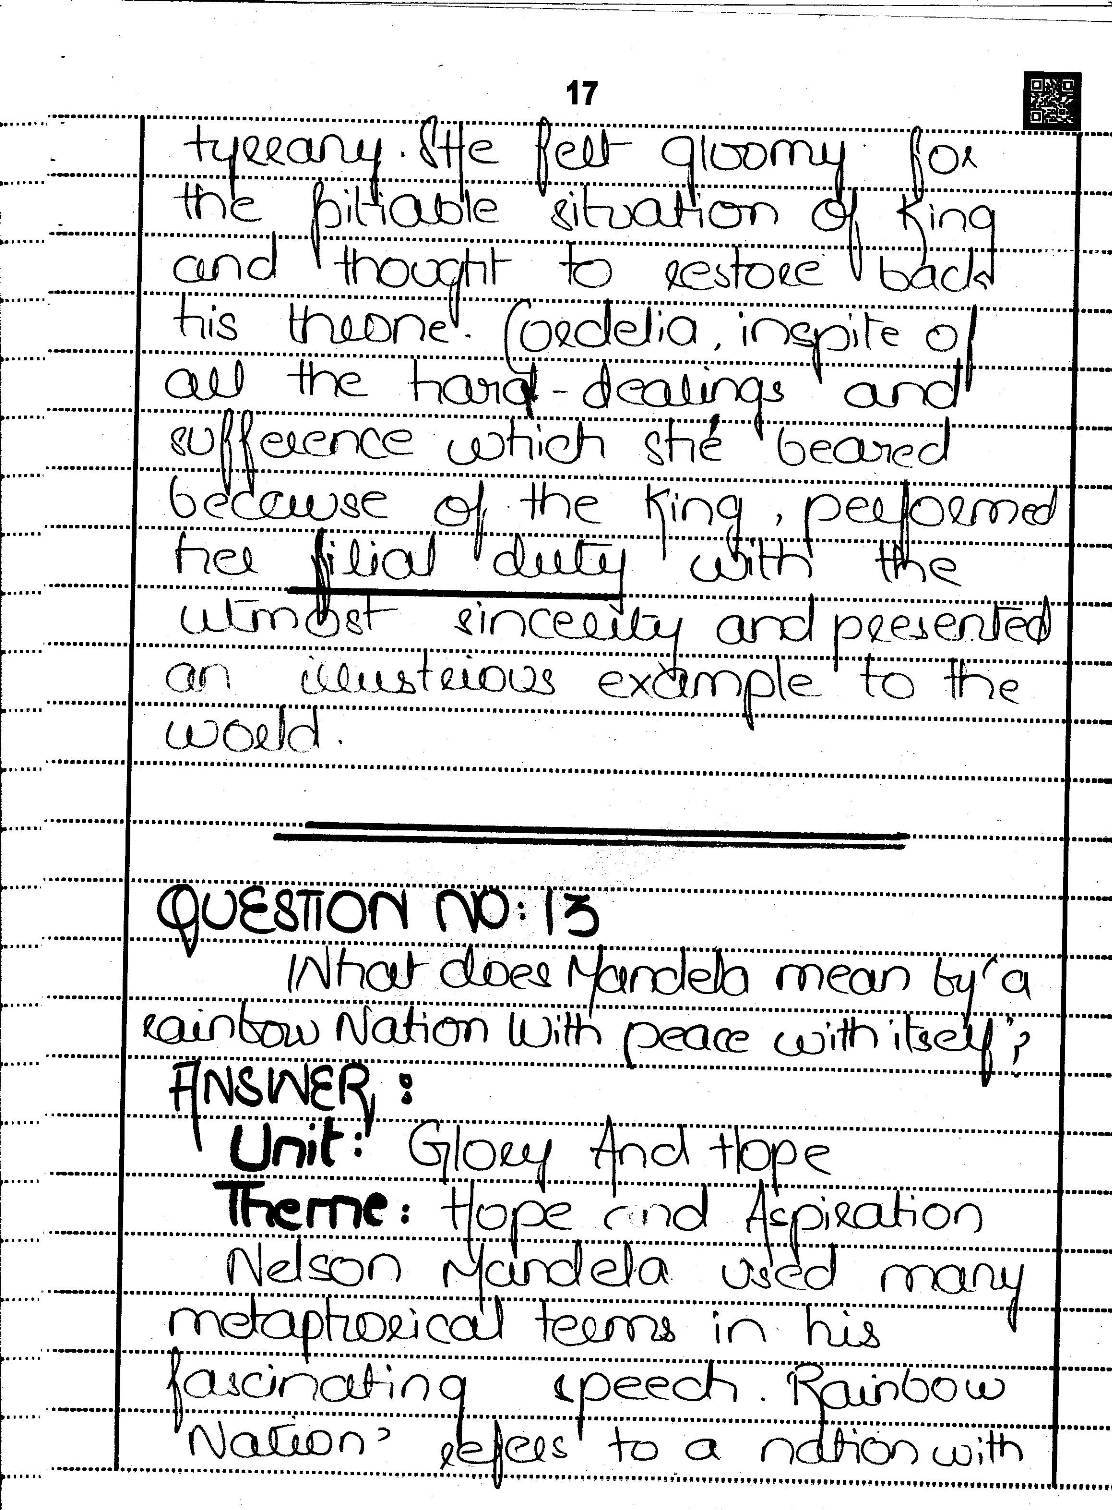 17
tyrrany. She felt gloomy for
the pitiable situation of King
and thought to restore back
his throne. Cordelia, inspite of
all the hard-dealings and
sufference which she beared
because of the King, performed
her filial duty with the
utmost sincerity and presented
an illustrious example to the
world.
QUESTION NO: 13
What does Mandela mean by 'a
rainbow Nation With peace with itself'?
ANSWER:
Unit: Glory And Hope
Theme: Hope and Aspiration
Nelson Mandela used many
metaphorical terms in his
fascinating speech. 'Rainbow
Nation' refers to a nation with